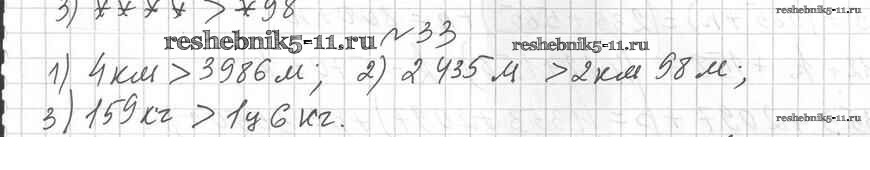 3) **** > *98
reshebnik5-11.ru
reshebnik5-11.ru
№33
reshebnik5-11.ru
1) 4 км > 3986 м; 2) 2 435 м > 2 км 98 м;
3) 159 кг > 1 ц 6 кг.
reshebnik5-11.ru